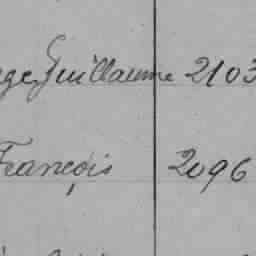 Guillaume 2103
François 2096